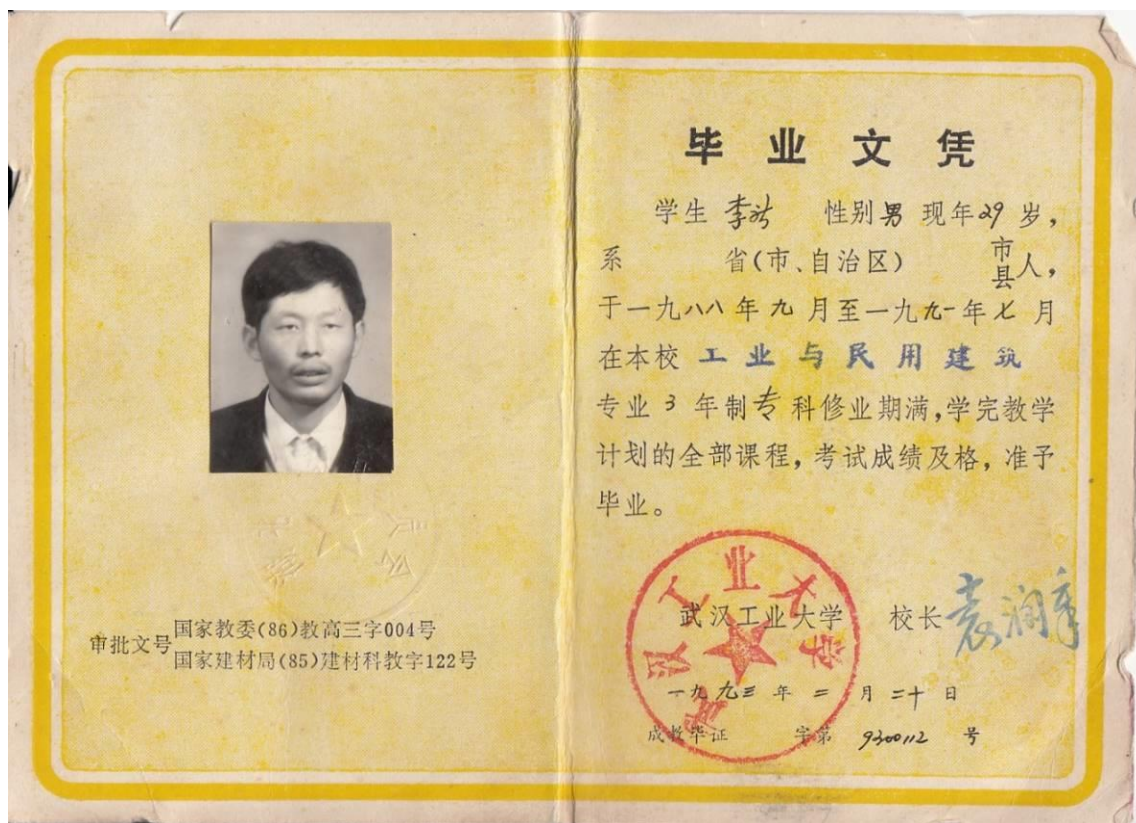 审批文号
国家教委(86)教高三字004号
国家建材局(85)建材科教字122号
毕业文凭
学生 李 性别男 现年29岁,
系 省(市、自治区) 市县人,
于一九八八年九月至一九九一年七月
在本校 工业与民用建筑
专业3年制专科修业期满,学完教学
计划的全部课程,考试成绩及格,准予
毕业。
武汉工业大学 校长 袁润章
一九九三年二月二十日
成教毕证 字第 9300112 号
武汉工业大学